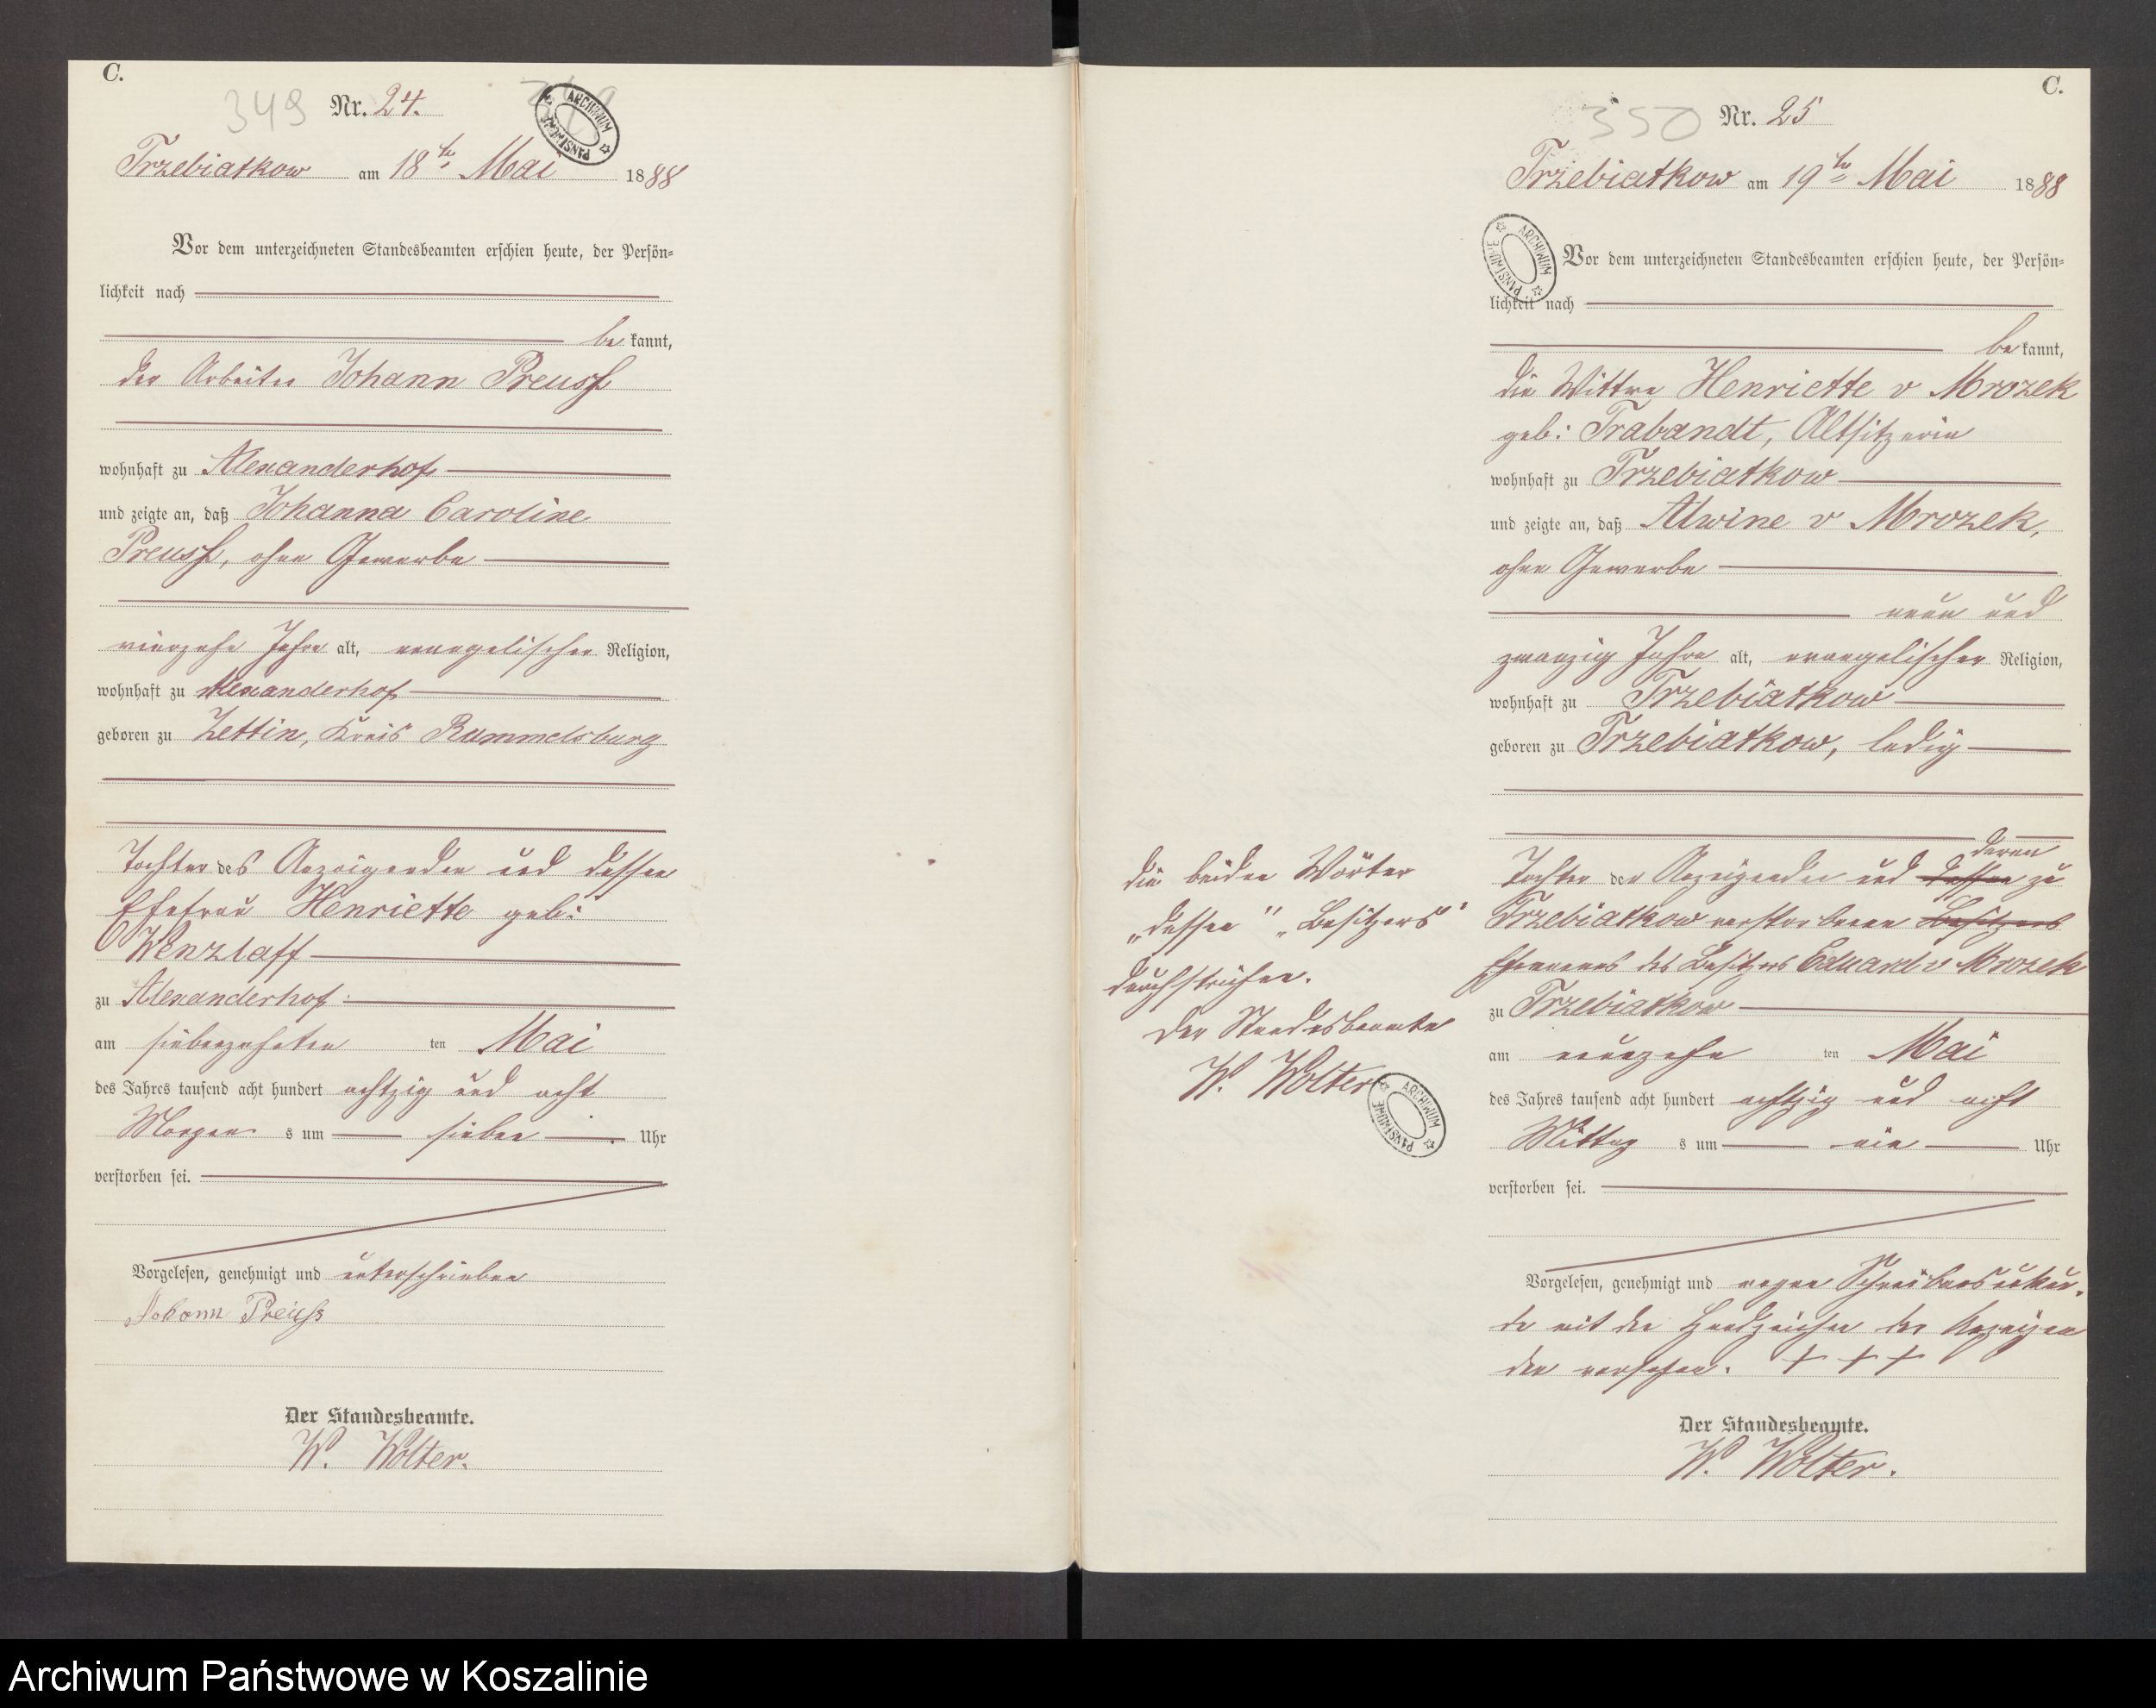 C.
349 Nr. 24.
ARCHIWUM PAŃSTWOWE
Trzebiatkow am 18ten Mai 1888
Vor dem unterzeichneten Standesbeamten erschien heute, der Persön-
lichkeit nach
be kannt,
der Arbeiter Johann Preuss
wohnhaft zu Alexanderhof
und zeigte an, daß Johanna Caroline
Preuss, ohne Gewerbe
vierzehn Jahre alt, evangelischer Religion,
wohnhaft zu Alexanderhof
geboren zu Zettin, Kreis Rummelsburg
Tochter des Anzeigenden und dessen
Ehefrau Henriette geb:
Wenzlaff
zu Alexanderhof
am siebenzehnten ten Mai
des Jahres tausend acht hundert achtzig und acht
Morgen s um sieben Uhr
verstorben sei.
Vorgelesen, genehmigt und unterschrieben
Johann Preuß
Der Standesbeamte.
W. Wolter.
C.
350 Nr. 25
Trzebiatkow am 19ten Mai 1888
ARCHIWUM PAŃSTWOWE
Vor dem unterzeichneten Standesbeamten erschien heute, der Persön-
lichkeit nach
be kannt,
die Wittwe Henriette v Mrozek
geb: Trabandt, Altsitzerin
wohnhaft zu Trzebiatkow
und zeigte an, daß Alwine v Mrozek,
ohne Gewerbe
neun und
zwanzig Jahre alt, evangelischer Religion,
wohnhaft zu Trzebiatkow
geboren zu Trzebiatkow, ledig
deren
Tochter der Anzeigenden und dessen zu
Trzebiatkow verstorbenen Besitzers
Ehemannes des Besitzers Eduard v Mrozek
zu Trzebiatkow
am neunzehn ten Mai
des Jahres tausend acht hundert achtzig und acht
Mittag s um ein Uhr
verstorben sei.
Vorgelesen, genehmigt und wegen Schreibensunkun-
de mit den Handzeichen der Anzeigen
den versehen. + + +
Der Standesbeamte.
W. Wolter.
die beiden Wörter
„dessen" „Besitzers"
durchstrichen.
Der Standesbeamte
W. Wolter
ARCHIWUM PAŃSTWOWE
Archiwum Państwowe w Koszalinie